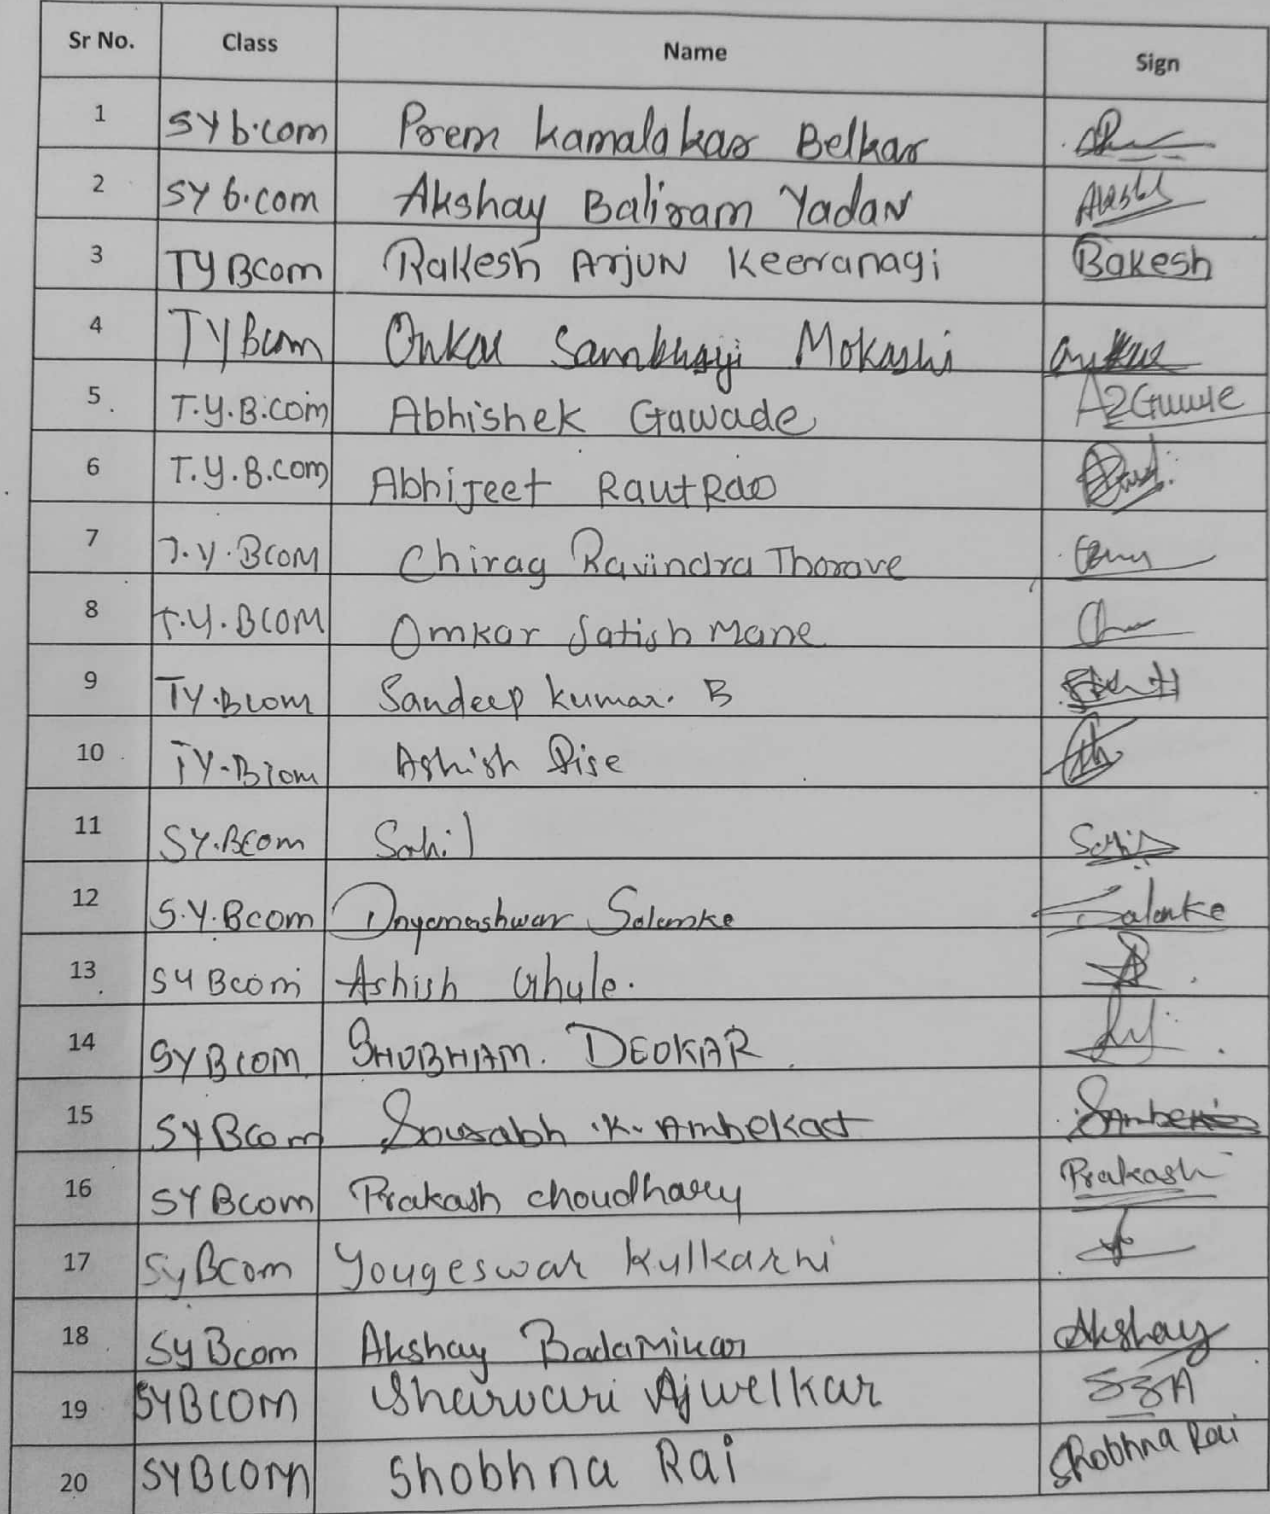 Sr No. Class Name Sign
1 SY b.com Prem Kamalakar Belkar
2 SY b.com Akshay Baliram Yadav
3 TY BCom Rakesh Arjun Keeranagi Rakesh
4 TY Bcom Onkar Sambhaji Mokashi
5 T.Y.B.com Abhishek Gawade
6 T.Y.B.com Abhijeet RautRao
7 T.Y.BCOM Chirag Ravindra Thorave
8 T.Y.BCOM Omkar Satish Mane
9 TY.Bcom Sandeep kumar. B
10 TY.Bcom Ashish Dise
11 SY.Bcom Sahil Sahil
12 S.Y.Bcom Dnyaneshwar Salunke Salunke
13 SY Bcom Ashish Ghule.
14 SYBCOM SHUBHAM. DEOKAR
15 SYBCom Sourabh .K. Ambekar
16 SYBcom Prakash choudhary Prakash
17 SyBcom Yougeswar Kulkarni
18 SyBcom Akshay Badamikar Akshay
19 SYBCOM Sharvari Ajwelkar SSA
20 SYBCOM Shobhna Rai Shobhna Rai